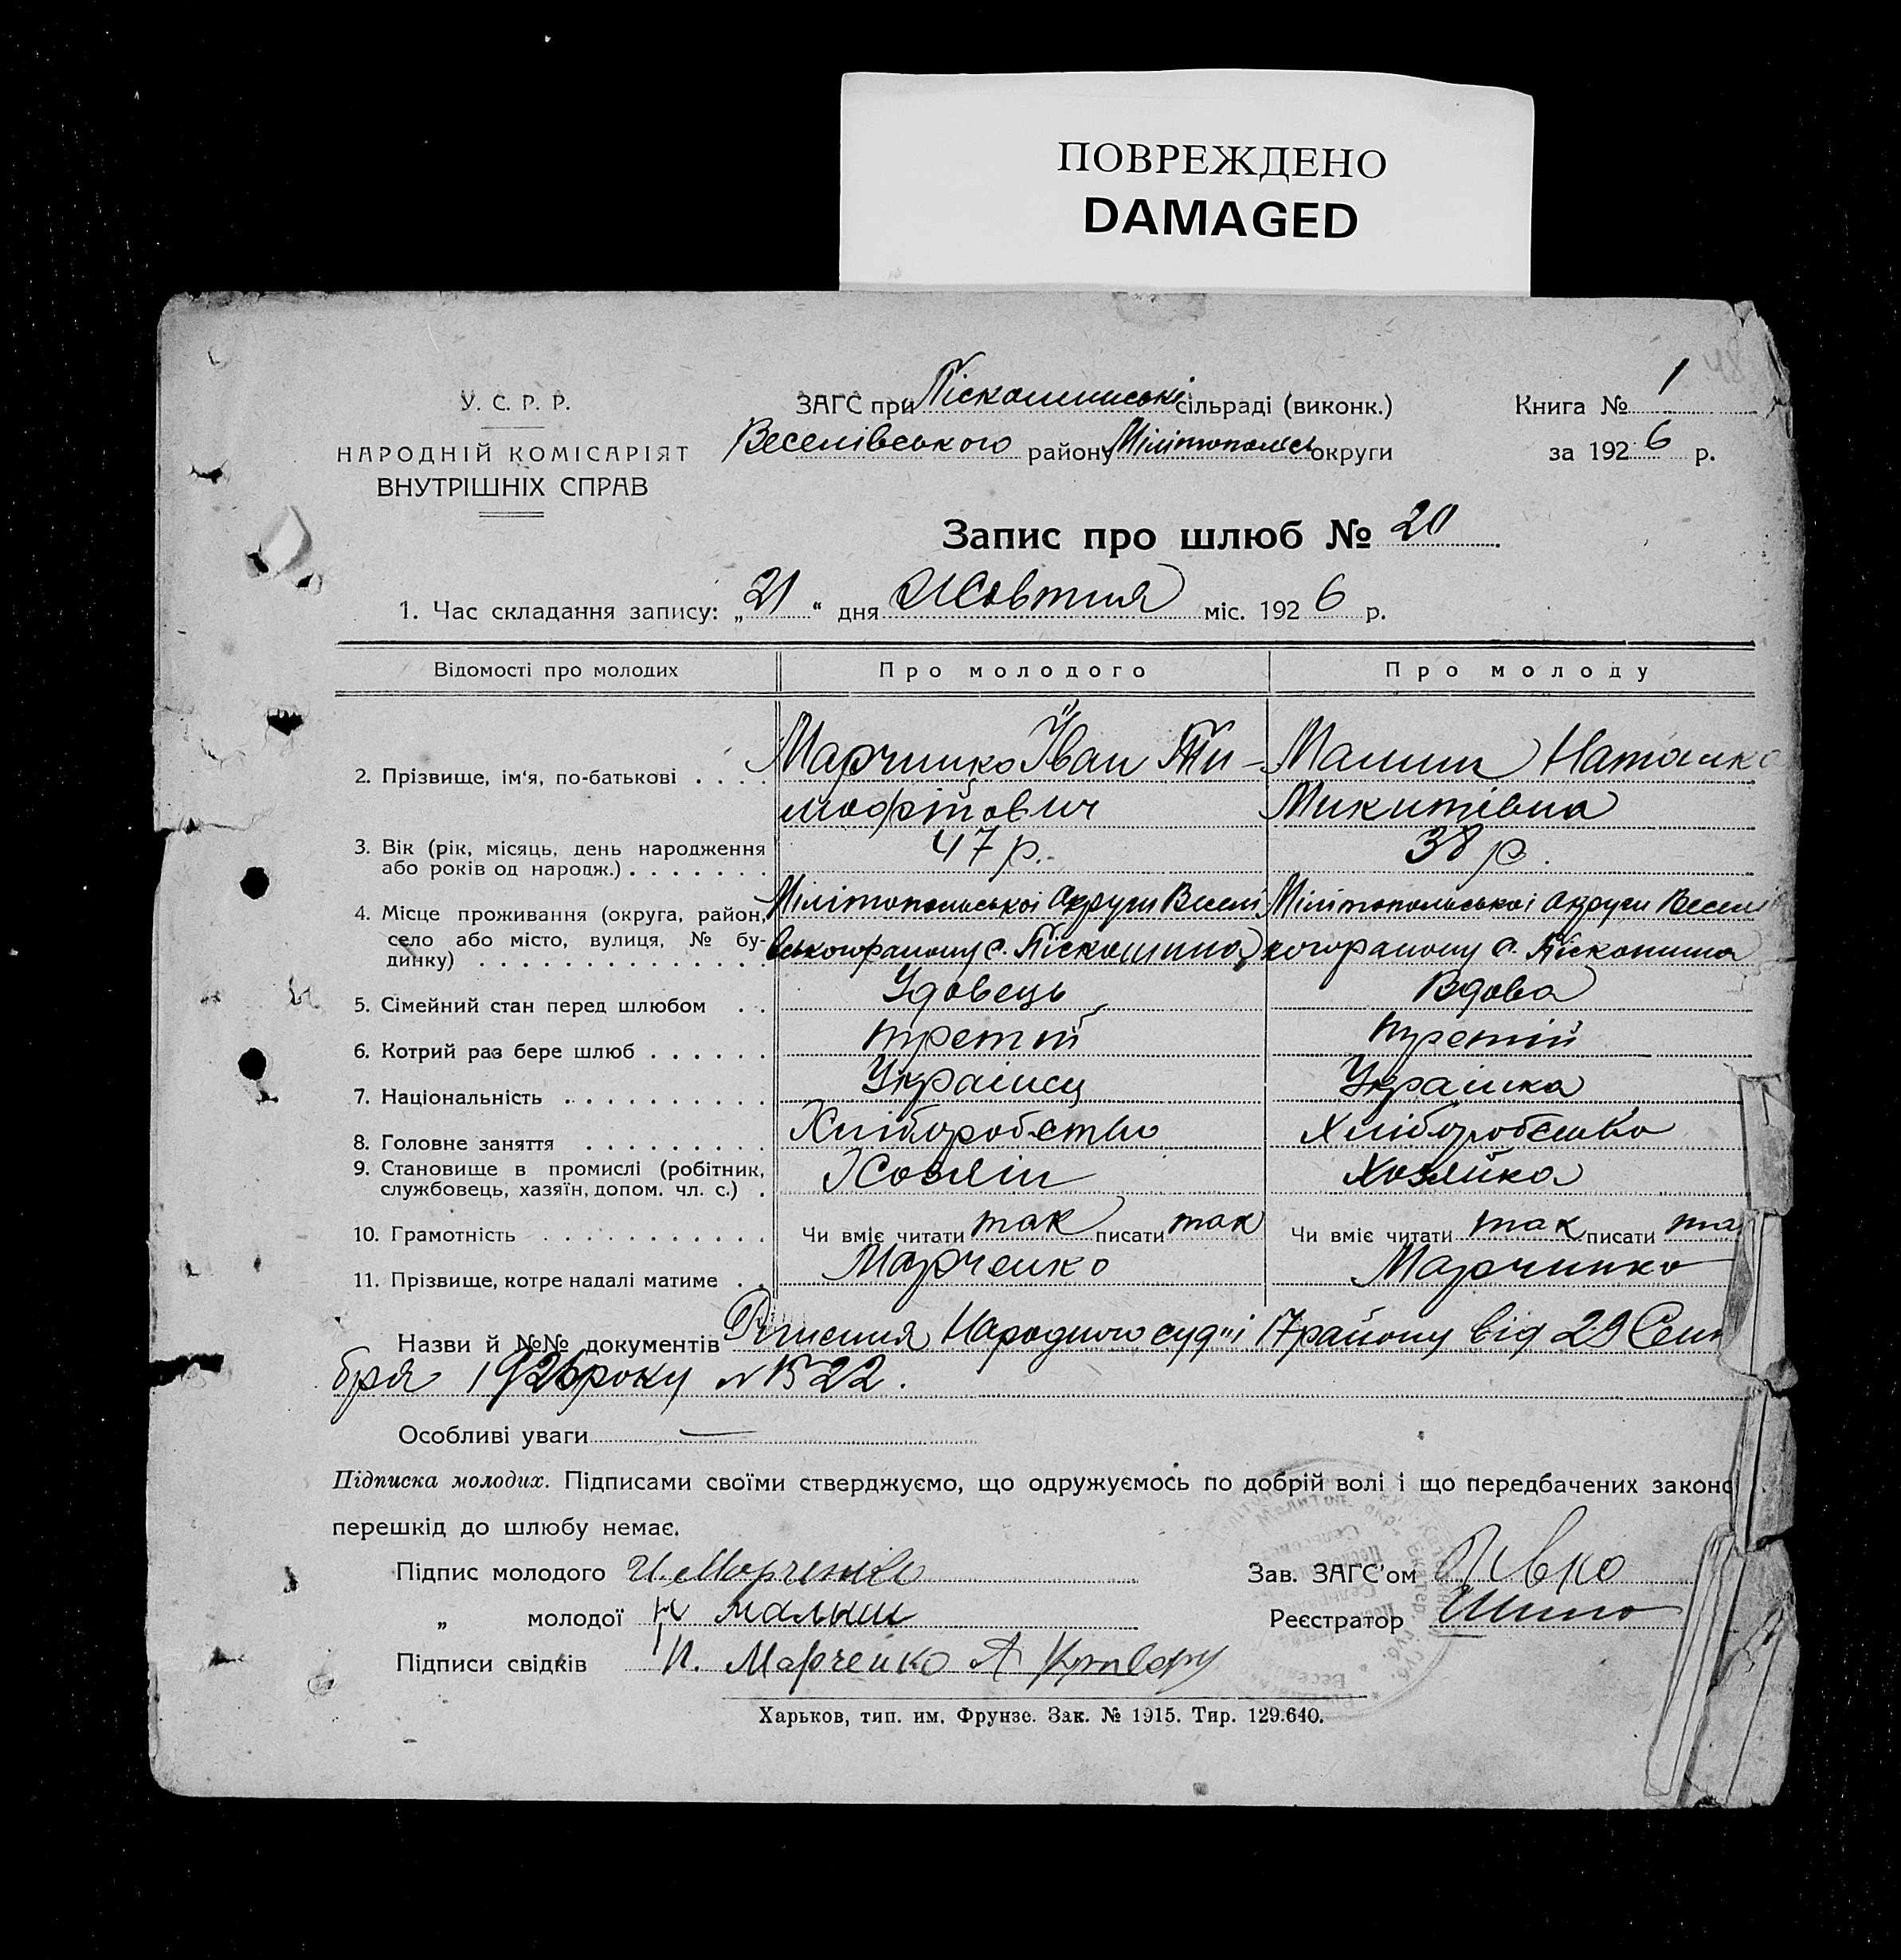 ПОВРЕЖДЕНО
DAMAGED
У. С. Р. Р.
НАРОДНІЙ КОМІСАРІЯТ
ВНУТРІШНІХ СПРАВ
ЗАГС при Піскошинські сільраді (виконк.)
Веселівського району Мілітопольсь округи
Книга № 1
за 1926 р.
Запис про шлюб № 20
1. Час складання запису: „21“ дня Жовтня міс. 1926 р.
Відомості про молодих Про молодого Про молоду
2. Прізвище, ім‘я, по-батькові . . . . Марчинко Іван Ти- Наташка
мофійович Микитівна
3. Вік (рік, місяць, день народження
або років од народж.) . . . . . . . 47 р. 38 р.
4. Місце проживання (округа, район, Мілітопольської Округи Веселі Мілітопольської Округи Веселі
село або місто, вулиця, № бу- вського району с. Піскошина кого району с. Піскошина
динку) . . . . . . . . . . . . . .
5. Сімейний стан перед шлюбом . . Удовець Вдова
6. Котрий раз бере шлюб . . . . . . третій третій
7. Національність . . . . . . . . . . Украінец Украінка
8. Головне заняття . . . . . . . . . Хліборобство Хліборобство
9. Становище в промислі (робітник,
службовець, хазяїн, допом. чл. с.) . Хозяін Хозяйка
10. Грамотність . . . . . . . . . . . Чи вміє читати так писати так Чи вміє читати так писати та
11. Прізвище, котре надалі матиме . . Марченко Марчинко
Назви й №№ документів Рішення Народного судді 17 району від 29 Сент
бря 1926 року № 1522.
Особливі уваги —
Підписка молодих. Підписами своїми стверджуємо, що одружуємось по добрій волі і що передбачених законо
перешкід до шлюбу немає.
Підпис молодого И. Марченко
„ молодої Н малыш
Підписи свідків И. Марченко А
Зав. ЗАГС’ом
Реєстратор
Харьков, тип. им. Фрунзе. Зак. № 1915. Тир. 129.640.